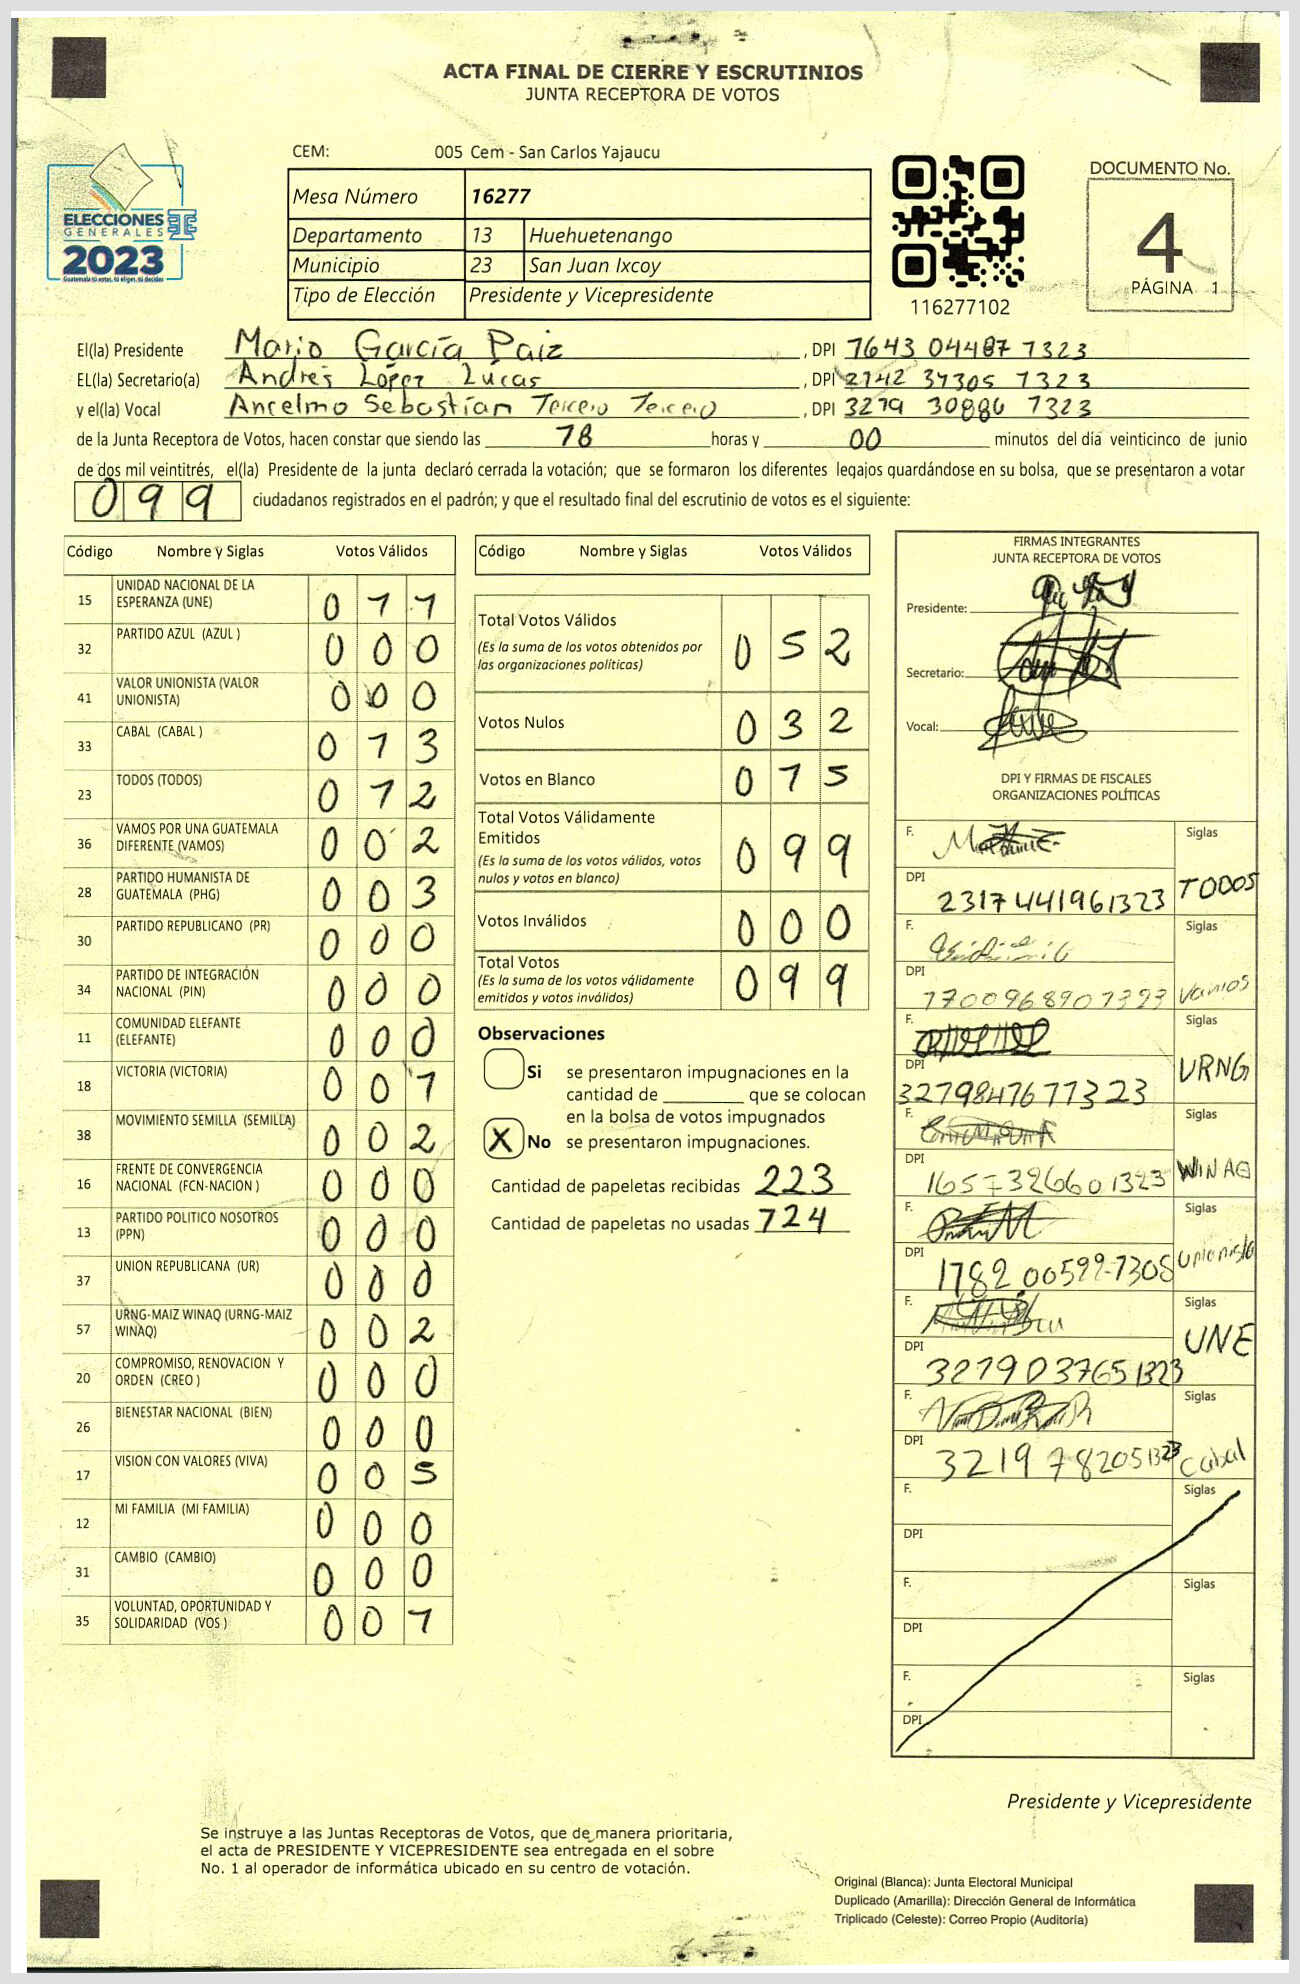 ACTA FINAL DE CIERRE Y ESCRUTINIOS
JUNTA RECEPTORA DE VOTOS
ELECCIONES
GENERALES
2023
Guatemala tú votas, tú eliges, tú decides
CEM: 005 Cem - San Carlos Yajaucu
Mesa Número 16277
Departamento 13 Huehuetenango
Municipio 23 San Juan Ixcoy
Tipo de Elección Presidente y Vicepresidente
116277102
DOCUMENTO No.
4
PÁGINA 1
El(la) Presidente Mario García Paiz , DPI 7643 04487 7323
EL(la) Secretario(a) Andrés López Lucas , DPI 2742 37305 7323
y el(la) Vocal Ancelmo Sebastían Tercero Tercero , DPI 3279 30886 7323
de la Junta Receptora de Votos, hacen constar que siendo las 78 horas y 00 minutos del día veinticinco de junio
de dos mil veintitrés, el(la) Presidente de la junta declaró cerrada la votación; que se formaron los diferentes legajos guardándose en su bolsa, que se presentaron a votar
099 ciudadanos registrados en el padrón; y que el resultado final del escrutinio de votos es el siguiente:
Código Nombre y Siglas Votos Válidos
15 UNIDAD NACIONAL DE LA ESPERANZA (UNE) 0 7 7
32 PARTIDO AZUL (AZUL ) 0 0 0
41 VALOR UNIONISTA (VALOR UNIONISTA) 0 0 0
33 CABAL (CABAL ) 0 7 3
23 TODOS (TODOS) 0 7 2
36 VAMOS POR UNA GUATEMALA DIFERENTE (VAMOS) 0 0 2
28 PARTIDO HUMANISTA DE GUATEMALA (PHG) 0 0 3
30 PARTIDO REPUBLICANO (PR) 0 0 0
34 PARTIDO DE INTEGRACIÓN NACIONAL (PIN) 0 0 0
11 COMUNIDAD ELEFANTE (ELEFANTE) 0 0 0
18 VICTORIA (VICTORIA) 0 0 7
38 MOVIMIENTO SEMILLA (SEMILLA) 0 0 2
16 FRENTE DE CONVERGENCIA NACIONAL (FCN-NACION ) 0 0 0
13 PARTIDO POLITICO NOSOTROS (PPN) 0 0 0
37 UNION REPUBLICANA (UR) 0 0 0
57 URNG-MAIZ WINAQ (URNG-MAIZ WINAQ) 0 0 2
20 COMPROMISO, RENOVACION Y ORDEN (CREO ) 0 0 0
26 BIENESTAR NACIONAL (BIEN) 0 0 0
17 VISION CON VALORES (VIVA) 0 0 5
12 MI FAMILIA (MI FAMILIA) 0 0 0
31 CAMBIO (CAMBIO) 0 0 0
35 VOLUNTAD, OPORTUNIDAD Y SOLIDARIDAD (VOS ) 0 0 7
Código Nombre y Siglas Votos Válidos
Total Votos Válidos 0 5 2
(Es la suma de los votos obtenidos por
las organizaciones políticas)
Votos Nulos 0 3 2
Votos en Blanco 0 7 5
Total Votos Válidamente
Emitidos 0 9 9
(Es la suma de los votos válidos, votos
nulos y votos en blanco)
Votos Inválidos 0 0 0
Total Votos 0 9 9
(Es la suma de los votos válidamente
emitidos y votos inválidos)
Observaciones
Si se presentaron impugnaciones en la
cantidad de ________ que se colocan
en la bolsa de votos impugnados
X No se presentaron impugnaciones.
Cantidad de papeletas recibidas 223
Cantidad de papeletas no usadas 724
FIRMAS INTEGRANTES
JUNTA RECEPTORA DE VOTOS
Presidente:
Secretario:
Vocal:
DPI Y FIRMAS DE FISCALES
ORGANIZACIONES POLÍTICAS
F. Siglas
DPI 2317 441961323 TODOS
F. Siglas
DPI 7700968907323 Vamos
F. Siglas
DPI 3279847677323 URNG
F. Siglas
DPI 1657326601323 WINAQ
F. Siglas
DPI 1782 00599-7308 Unionista
F. Siglas
DPI 3279037651323 UNE
F. Siglas
DPI 3219782051323 Cabal
F. Siglas
DPI
F. Siglas
DPI
F. Siglas
DPI
Presidente y Vicepresidente
Se instruye a las Juntas Receptoras de Votos, que de manera prioritaria,
el acta de PRESIDENTE Y VICEPRESIDENTE sea entregada en el sobre
No. 1 al operador de informática ubicado en su centro de votación.
Original (Blanca): Junta Electoral Municipal
Duplicado (Amarilla): Dirección General de Informática
Triplicado (Celeste): Correo Propio (Auditoría)